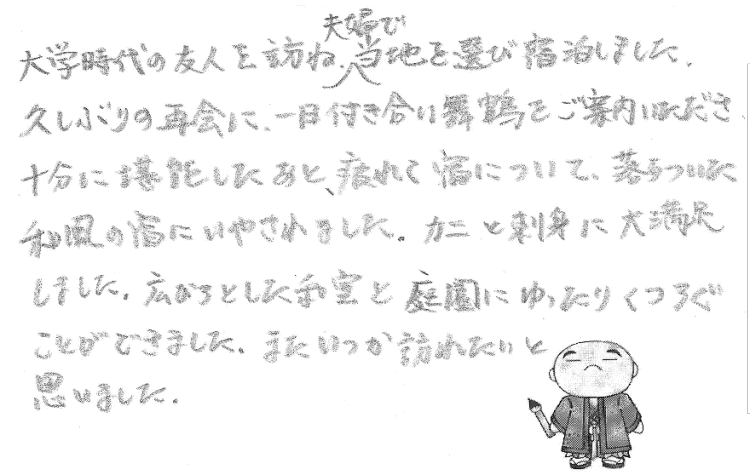 大学時代の友人を訪ね、夫婦で当地を選び宿泊しました。
久しぶりの再会に、一日付き合い舞鶴をご案内いただき
十分に堪能したあと、疲れて宿について、落ちついた
和風の宿にいやされました。カニと刺身に大満足
しました。広びろとした和室と庭園にゆったりくつろぐ
ことができました。またいつか訪れたいと
思いました。